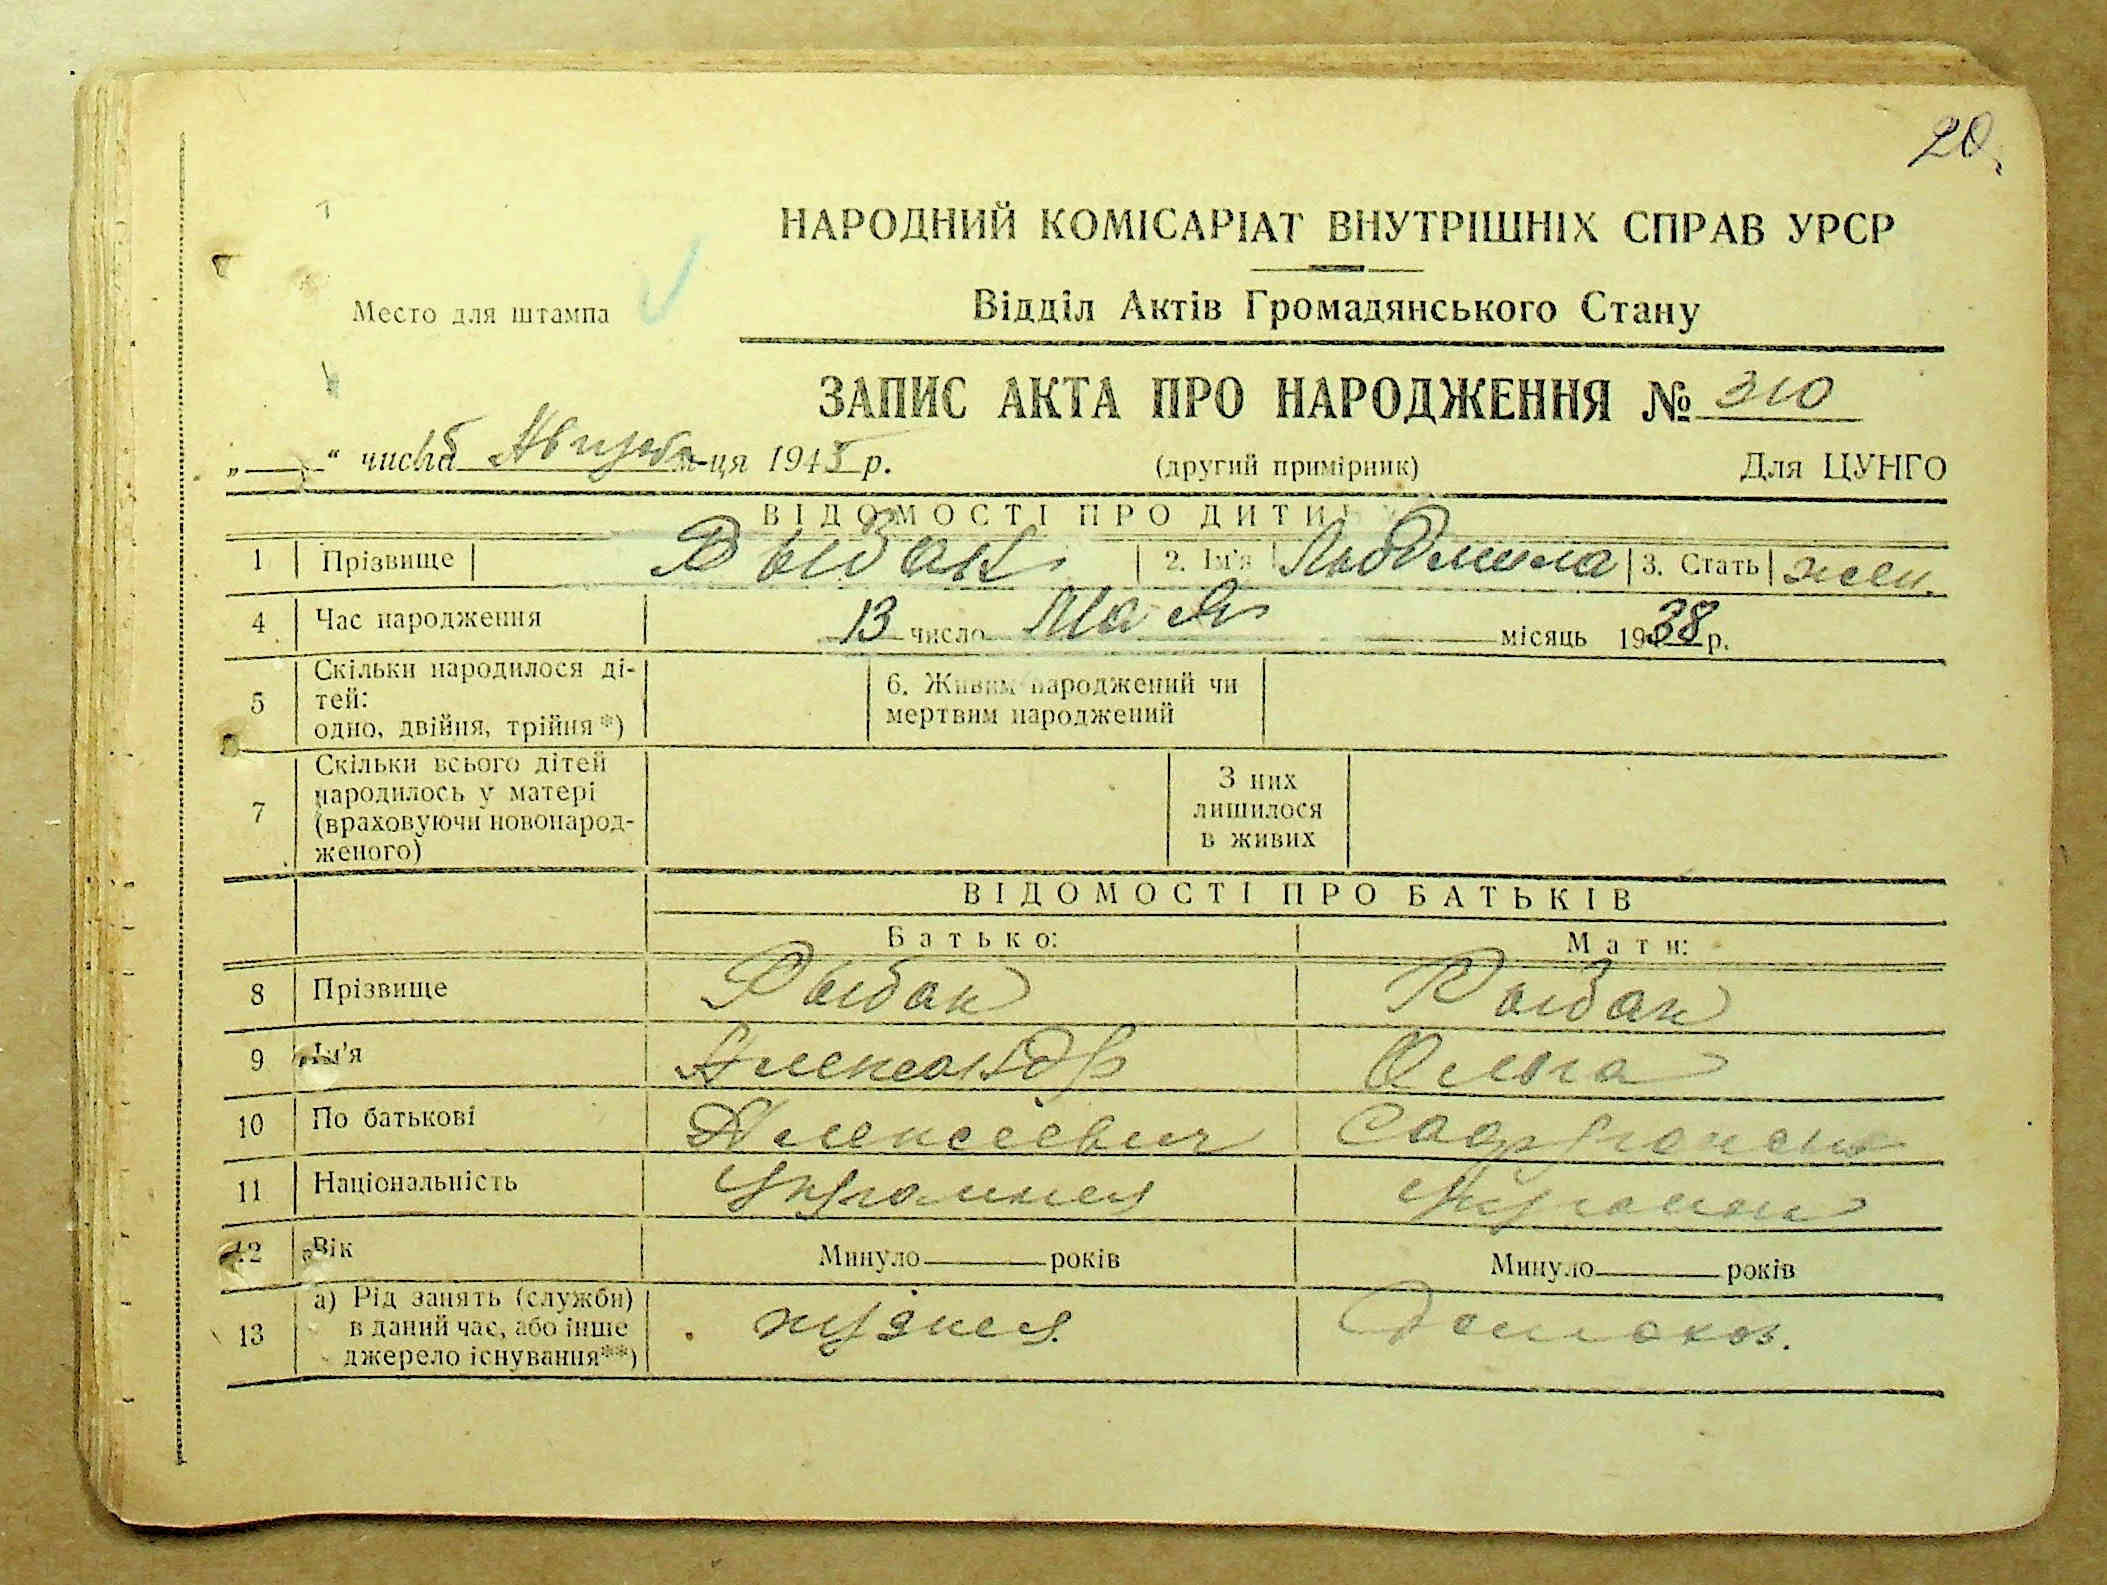 20.
НАРОДНИЙ КОМІСАРІАТ ВНУТРІШНІХ СПРАВ УРСР
Место для штампа
Відділ Актів Громадянського Стану
ЗАПИС АКТА ПРО НАРОДЖЕННЯ № 310
„ “ числа Августа м-ця 1945 р. (другий примірник) Для ЦУНГО
ВІДОМОСТІ ПРО ДИТИНУ
1 Прізвище Рыбак 2. Ім'я Людмила 3. Стать жен.
4 Час народження 13 число Мая місяць 1938 р.
5 Скільки народилося ді-
тей:
одно, двійня, трійня*)
6. Живим народжений чи
мертвим народжений
7 Скільки всього дітей
народилось у матері
(враховуючи новонарод-
женого)
З них
лишилося
в живих
ВІДОМОСТІ ПРО БАТЬКІВ
Батько: Мати:
8 Прізвище Рыбак Рыбак
9 Ім'я Александр Ольга
10 По батькові Алексеевич
11 Національність
12 Вік Минуло років Минуло років
13 а) Рід занять (служби)
в даний час, або інше
джерело існування**)
Домохоз.